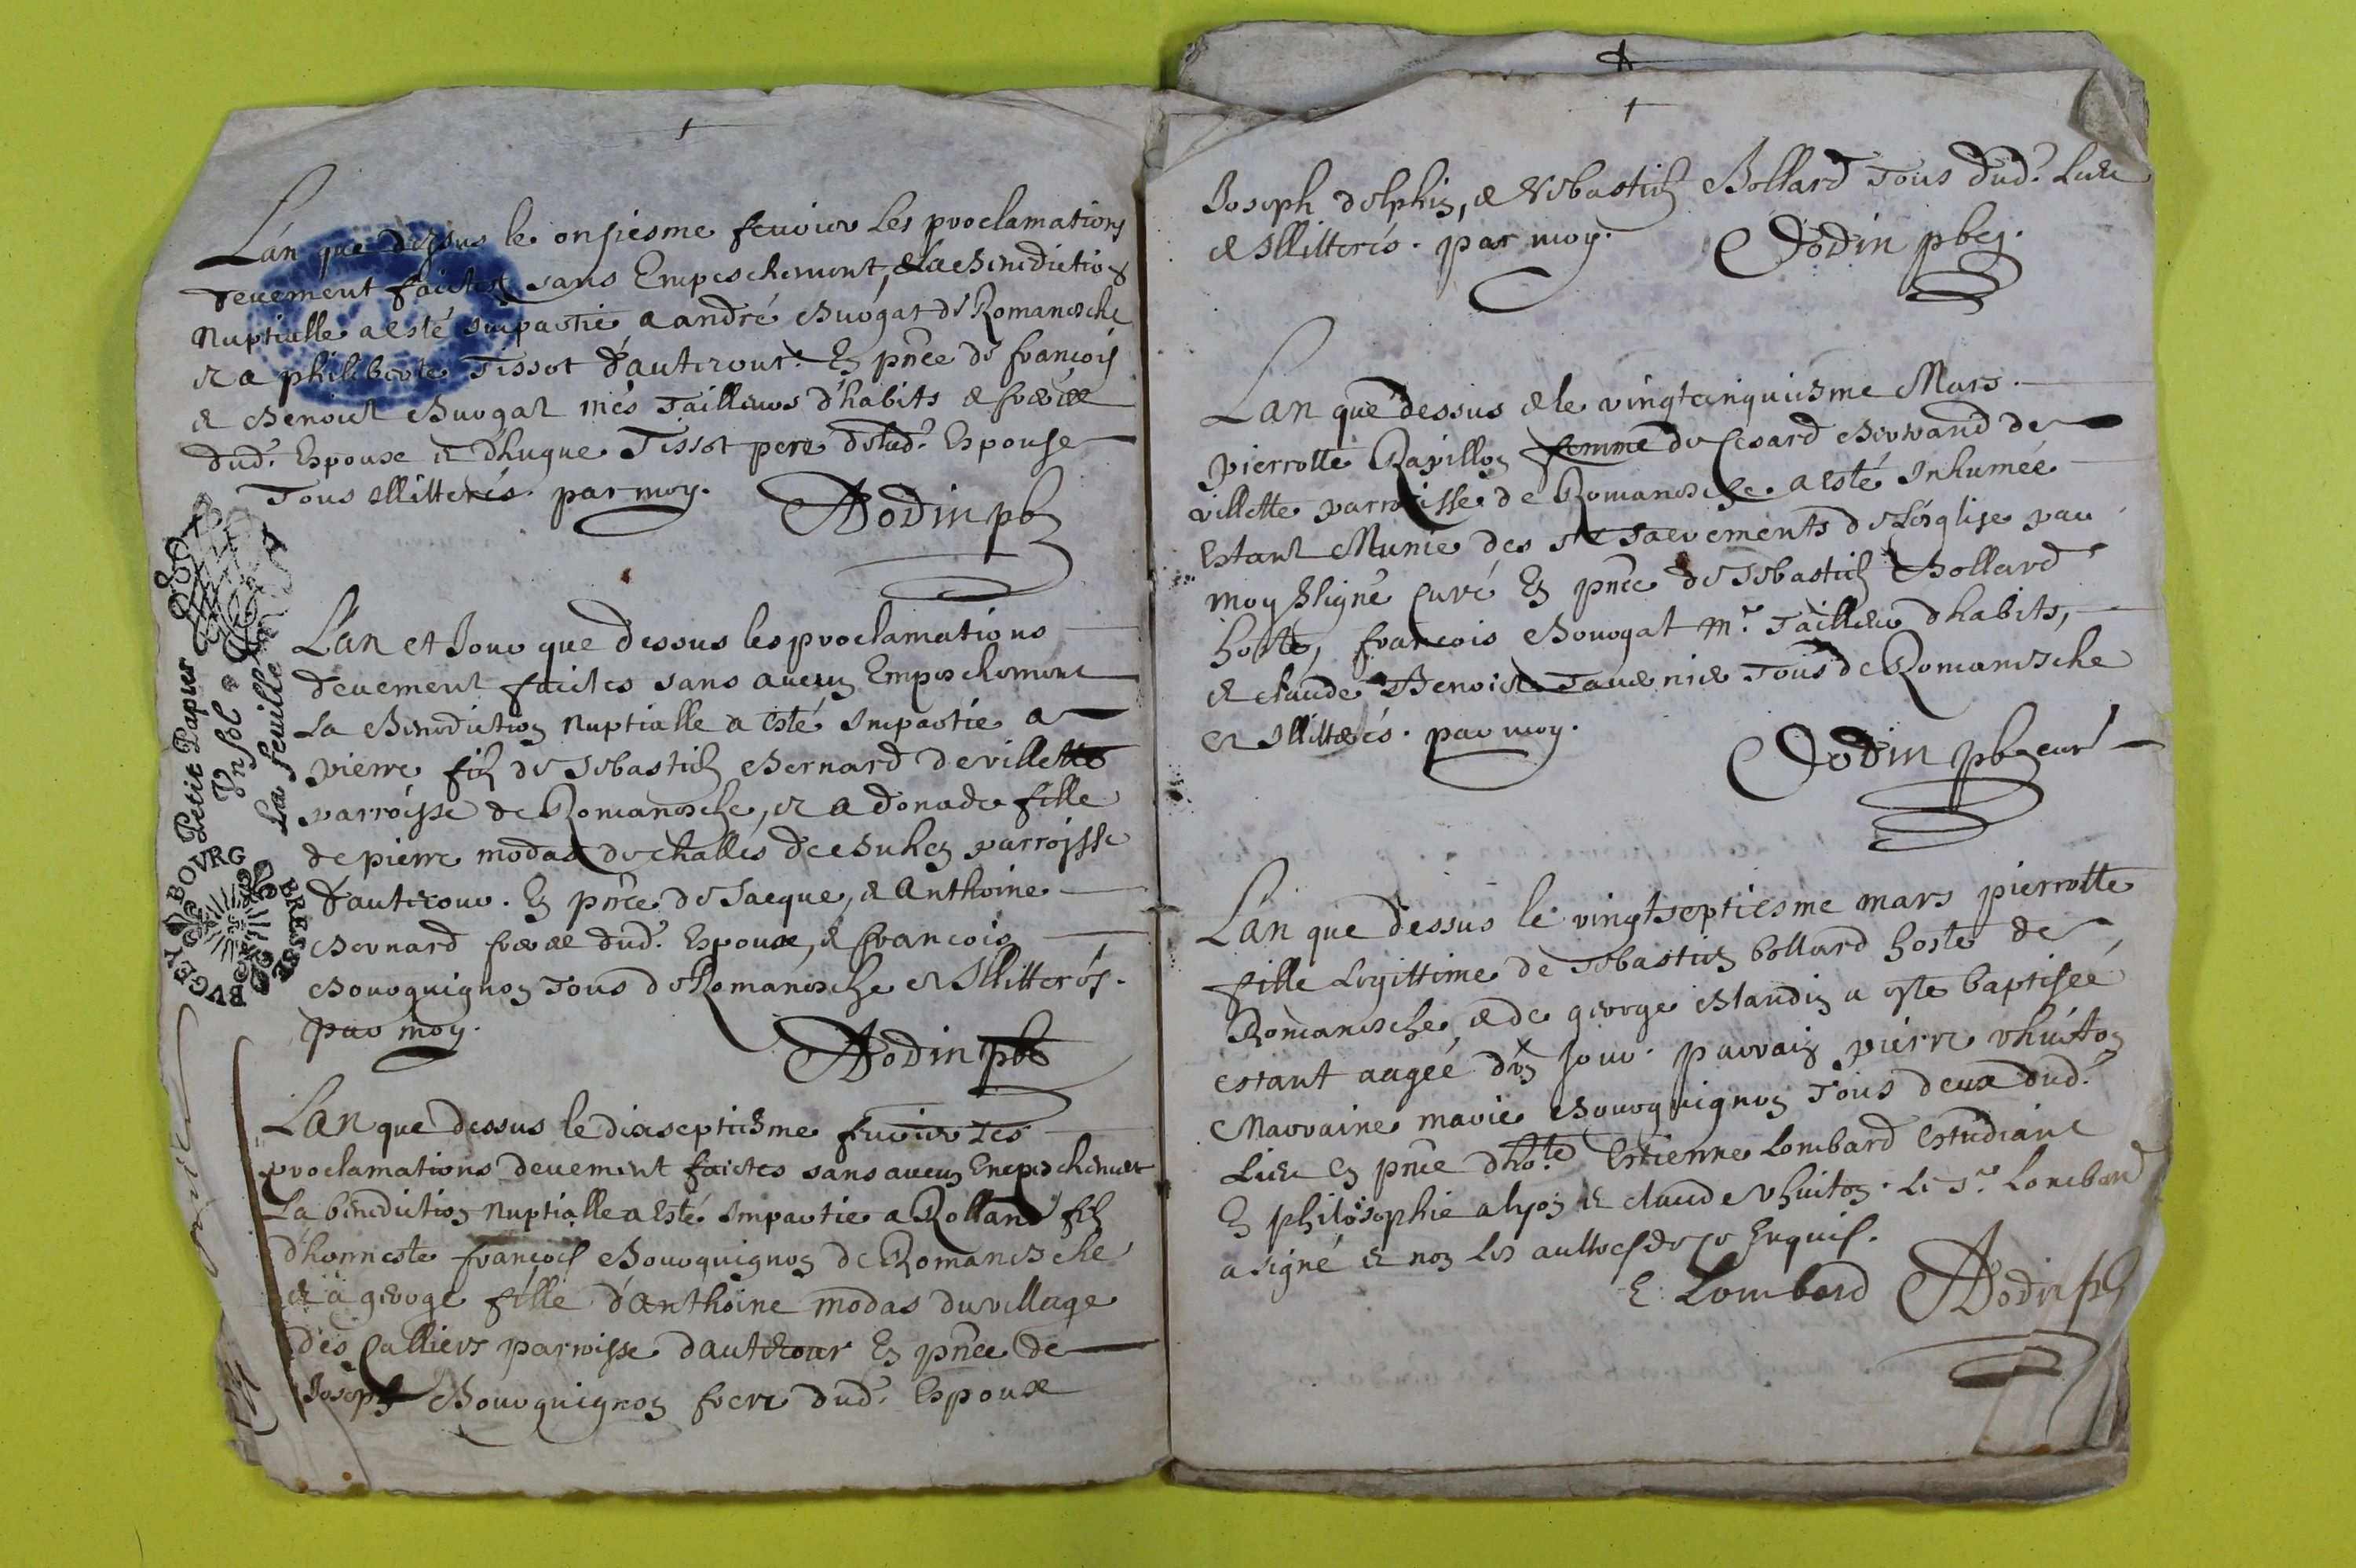 L'an que dessus le onsiesme feuvier Les proclamations
deuement faictes sans Empeschement, & la Benediction
Nuptialle a esté Impartie a andré Buogat de Romanesche
et a philiberte Tissot d'autecour. En pnce de françois
& Benoict Buogat mes Tailleurs d'habits & freres
dud. Espoux et d'hugue Tissot pere delad. Espouse
Tous Illitterés. par moy. Dodin pb
L'an et Jour que dessus les proclamations
deuement faictes sans aucun Empeschement
La Benediction Nuptialle a esté Impartie a
pierre fils de Sebastien Bernard de villette
parroisse de Romanesche, et a donade fille
de pierre modas de challes de Buhen parroisse
d'autecour. En pnce de Jacque, & Anthoine
Bernard freres dud. Espoux, & francois
Bourguignon Tous de Romanesche et Illitterés.
par moy.
Dodin pb
L'an que dessus le dixseptiesme feuvier Les
proclamations deuement faictes sans aucun Empeschement
La benediction Nuptialle a Esté Impartie a Rolland fils
d'honneste françois Bourguignon de Romanesche
et a george fille d'anthoine modas du village
des Calliers parroisse dautecour En pnce de
Joseph Bourguignon frere dud. Espoux
BUGEY BOVRG BRESSE
Petit Papier
Un sol
La feuille
Joseph delphin, & Sebastien Bollard Tous dud. Lieu
& Illitterés. par moy. Dodin pbr.
L'an que dessus & le vingtcinquiesme Mars.
pierrotte Ravillon femme de Cesard Bertrand de
villette parroisse de Romanesche a esté Inhumée
Estant Munie des st Sacrements de L'esglise par
moy ssigné Curé En pnce de Sebastien Bollard
hoste, francois Bourgat Mr. Tailleur d'habits,
& claude Benoict Tavernier Tous de Romanesche
et Illitterés. par moy.
Dodin pbr curé
L'an que dessus le vingtseptiesme mars pierrotte
fille Legittime de Sebastien bollard hoste de
Romanesche, & de george Blandin a este baptisée
estant aagée d'un Jour. parrain pierre vhuitton
Marraine marie Bourguignon Tous deux dud.
Lieu En pnce d'hoste Estienne Lombard Estudiant
En philosophie a lyon et claude vhuiton. Le sr. Lombard
a signé et non les aultres de ce Enquis.
E. Lombard Dodin pb